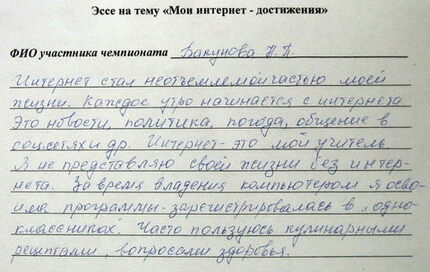 Эссе на тему «Мои интернет - достижения»
ФИО участника чемпионата Вакунова Н.П.
Интернет стал неотъемлемой частью моей
жизни. Каждое утро начинается с интернета
Это новости, политика, погода, общение в
соц.сетях и др. Интернет- это мой учитель
Я не представляю своей жизни без интер-
нета. За время владения компьютером я осво-
ила программы- зарегистрировалась в „одно-
классниках". Часто пользуюсь кулинарными
рецептами, вопросами здоровья.